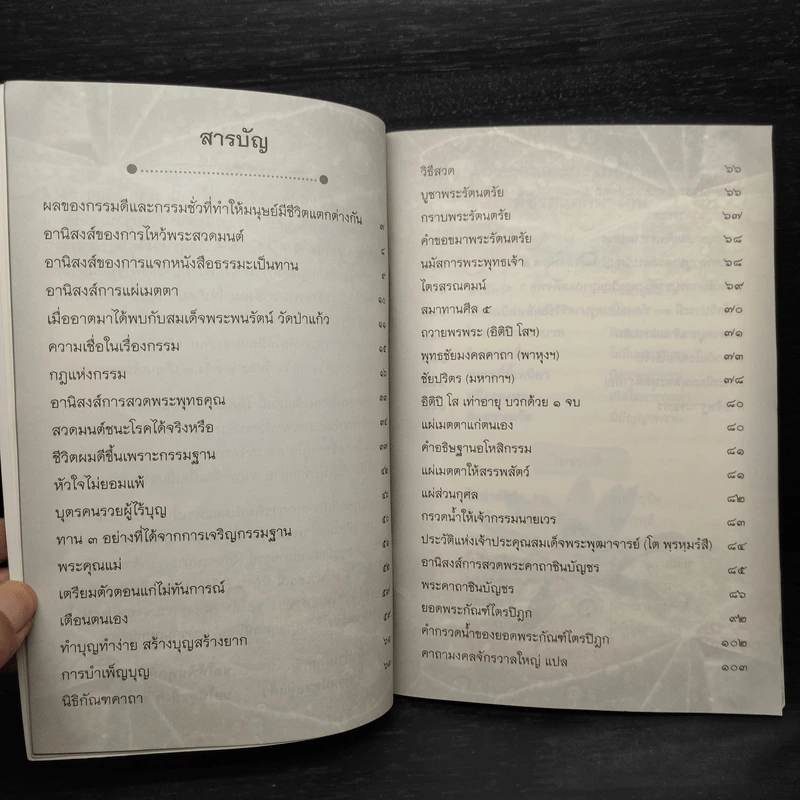 สารบัญ
ผลของกรรมดีและกรรมชั่วที่ทำให้มนุษย์มีชีวิตแตกต่างกัน
อานิสงส์ของการไหว้พระสวดมนต์ ๙
อานิสงส์ของการแจกหนังสือธรรมะเป็นทาน ๘
อานิสงส์การแผ่เมตตา ๙
เมื่ออาตมาได้พบกับสมเด็จพระพนรัตน์ วัดป่าแก้ว ๑๐
ความเชื่อในเรื่องกรรม ๑๑
กฎแห่งกรรม ๑๕
อานิสงส์การสวดพระพุทธคุณ ๑๖
สวดมนต์ชนะโรคได้จริงหรือ
ชีวิตผมดีขึ้นเพราะกรรมฐาน
หัวใจไม่ยอมแพ้
บุตรคนรวยผู้ไร้บุญ
ทาน ๓ อย่างที่ได้จากการเจริญกรรมฐาน
พระคุณแม่
เตรียมตัวตอนแก่ไม่ทันการณ์
เตือนตนเอง
ทำบุญทำง่าย สร้างบุญสร้างยาก
การบำเพ็ญบุญ
นิธิกัณฑคาถา
วิธีสวด ๖๖
บูชาพระรัตนตรัย ๖๖
กราบพระรัตนตรัย ๖๗
คำขอขมาพระรัตนตรัย ๖๘
นมัสการพระพุทธเจ้า ๖๘
ไตรสรณคมน์ ๖๙
สมาทานศีล ๕ ๗๐
ถวายพรพระ (อิติปิ โสฯ) ๗๑
พุทธชัยมงคลคาถา (พาหุงฯ) ๗๓
ชัยปริตร (มหากาฯ) ๗๘
อิติปิ โส เท่าอายุ บวกด้วย ๑ จบ ๘๐
แผ่เมตตาแก่ตนเอง ๘๐
คำอธิษฐานอโหสิกรรม ๘๑
แผ่เมตตาให้สรรพสัตว์ ๘๑
แผ่ส่วนกุศล ๘๒
กรวดน้ำให้เจ้ากรรมนายเวร ๘๓
ประวัติแห่งเจ้าประคุณสมเด็จพระพุฒาจารย์ (โต พฺรหฺมรํสี) ๘๔
อานิสงส์การสวดพระคาถาชินบัญชร ๘๕
พระคาถาชินบัญชร ๘๖
ยอดพระกัณฑ์ไตรปิฎก ๙๒
คำกรวดน้ำของยอดพระกัณฑ์ไตรปิฎก ๑๐๒
คาถามงคลจักรวาลใหญ่ แปล ๑๐๓